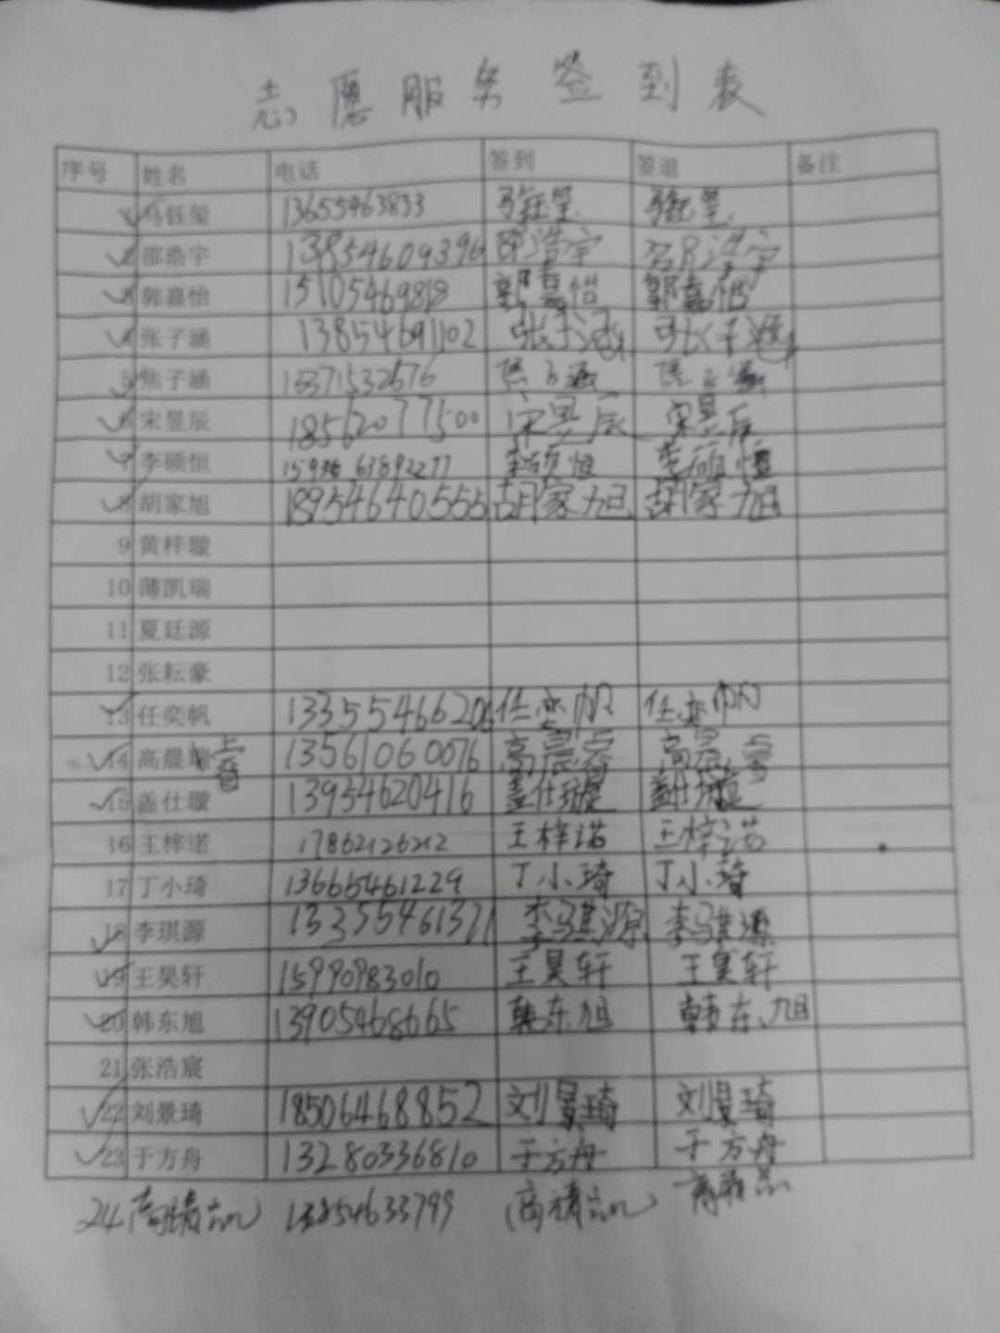 志愿服务签到表
序号 姓名 电话 签到 签退 备注
1 马钰玺 13655463833 马钰玺 马钰玺
2 邵浩宇 13854609396 邵浩宇 邵浩宇
3 郭嘉怡 15105469818 郭嘉怡 郭嘉怡
4 张子涵 13854691102 张子涵 张子涵
5 焦子涵 焦子涵 焦子涵
6 宋昱辰 18562077500 宋昱辰 宋昱辰
7 李硕恒 李硕恒 李硕恒
8 胡家旭 18954640555 胡家旭 胡家旭
9 黄梓璇
10 薄凯瑞
11 夏廷源
12 张耘豪
13 任奕帆 13355466206 任奕帆 任奕帆
14 高晨 13561060076 高晨 高晨
15 盖仕璇 13954620416 盖仕璇 盖仕璇
16 王梓诺 17862126212 王梓诺 王梓诺
17 丁小琦 13665461229 丁小琦 丁小琦
18 李琪源 13355461371 李琪源 李琪源
19 王昊轩 15990983010 王昊轩 王昊轩
20 韩东旭 13905468665 韩东旭 韩东旭
21 张浩宸
22 刘景琦 18506468852 刘景琦 刘景琦
23 于方舟 13280336810 于方舟 于方舟
24 13854633799